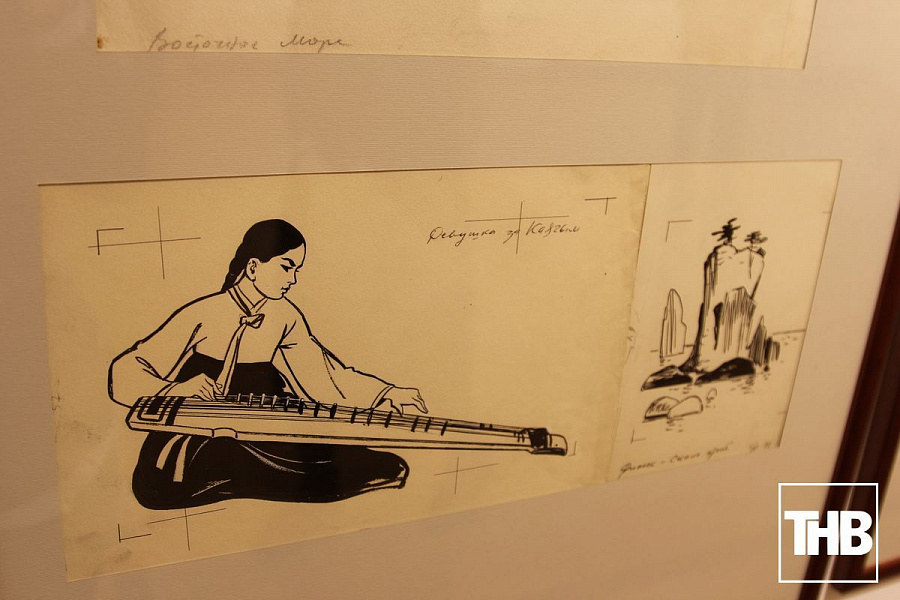 Восточное море
Девушка за Каягым
скала
ТНВ